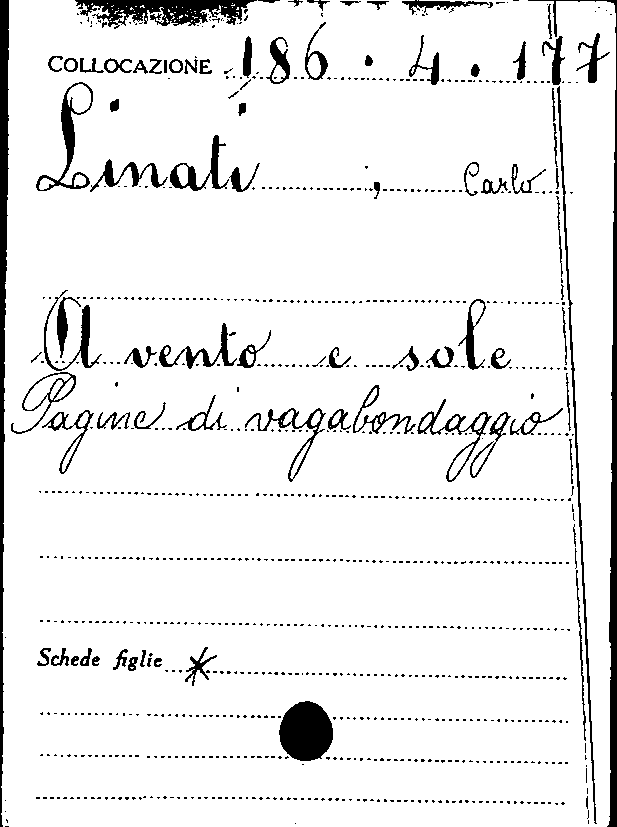 COLLOCAZIONE 186 . 4 . 177
Linati , Carlo
A vento e sole
Pagine di vagabondaggio
Schede figlie *